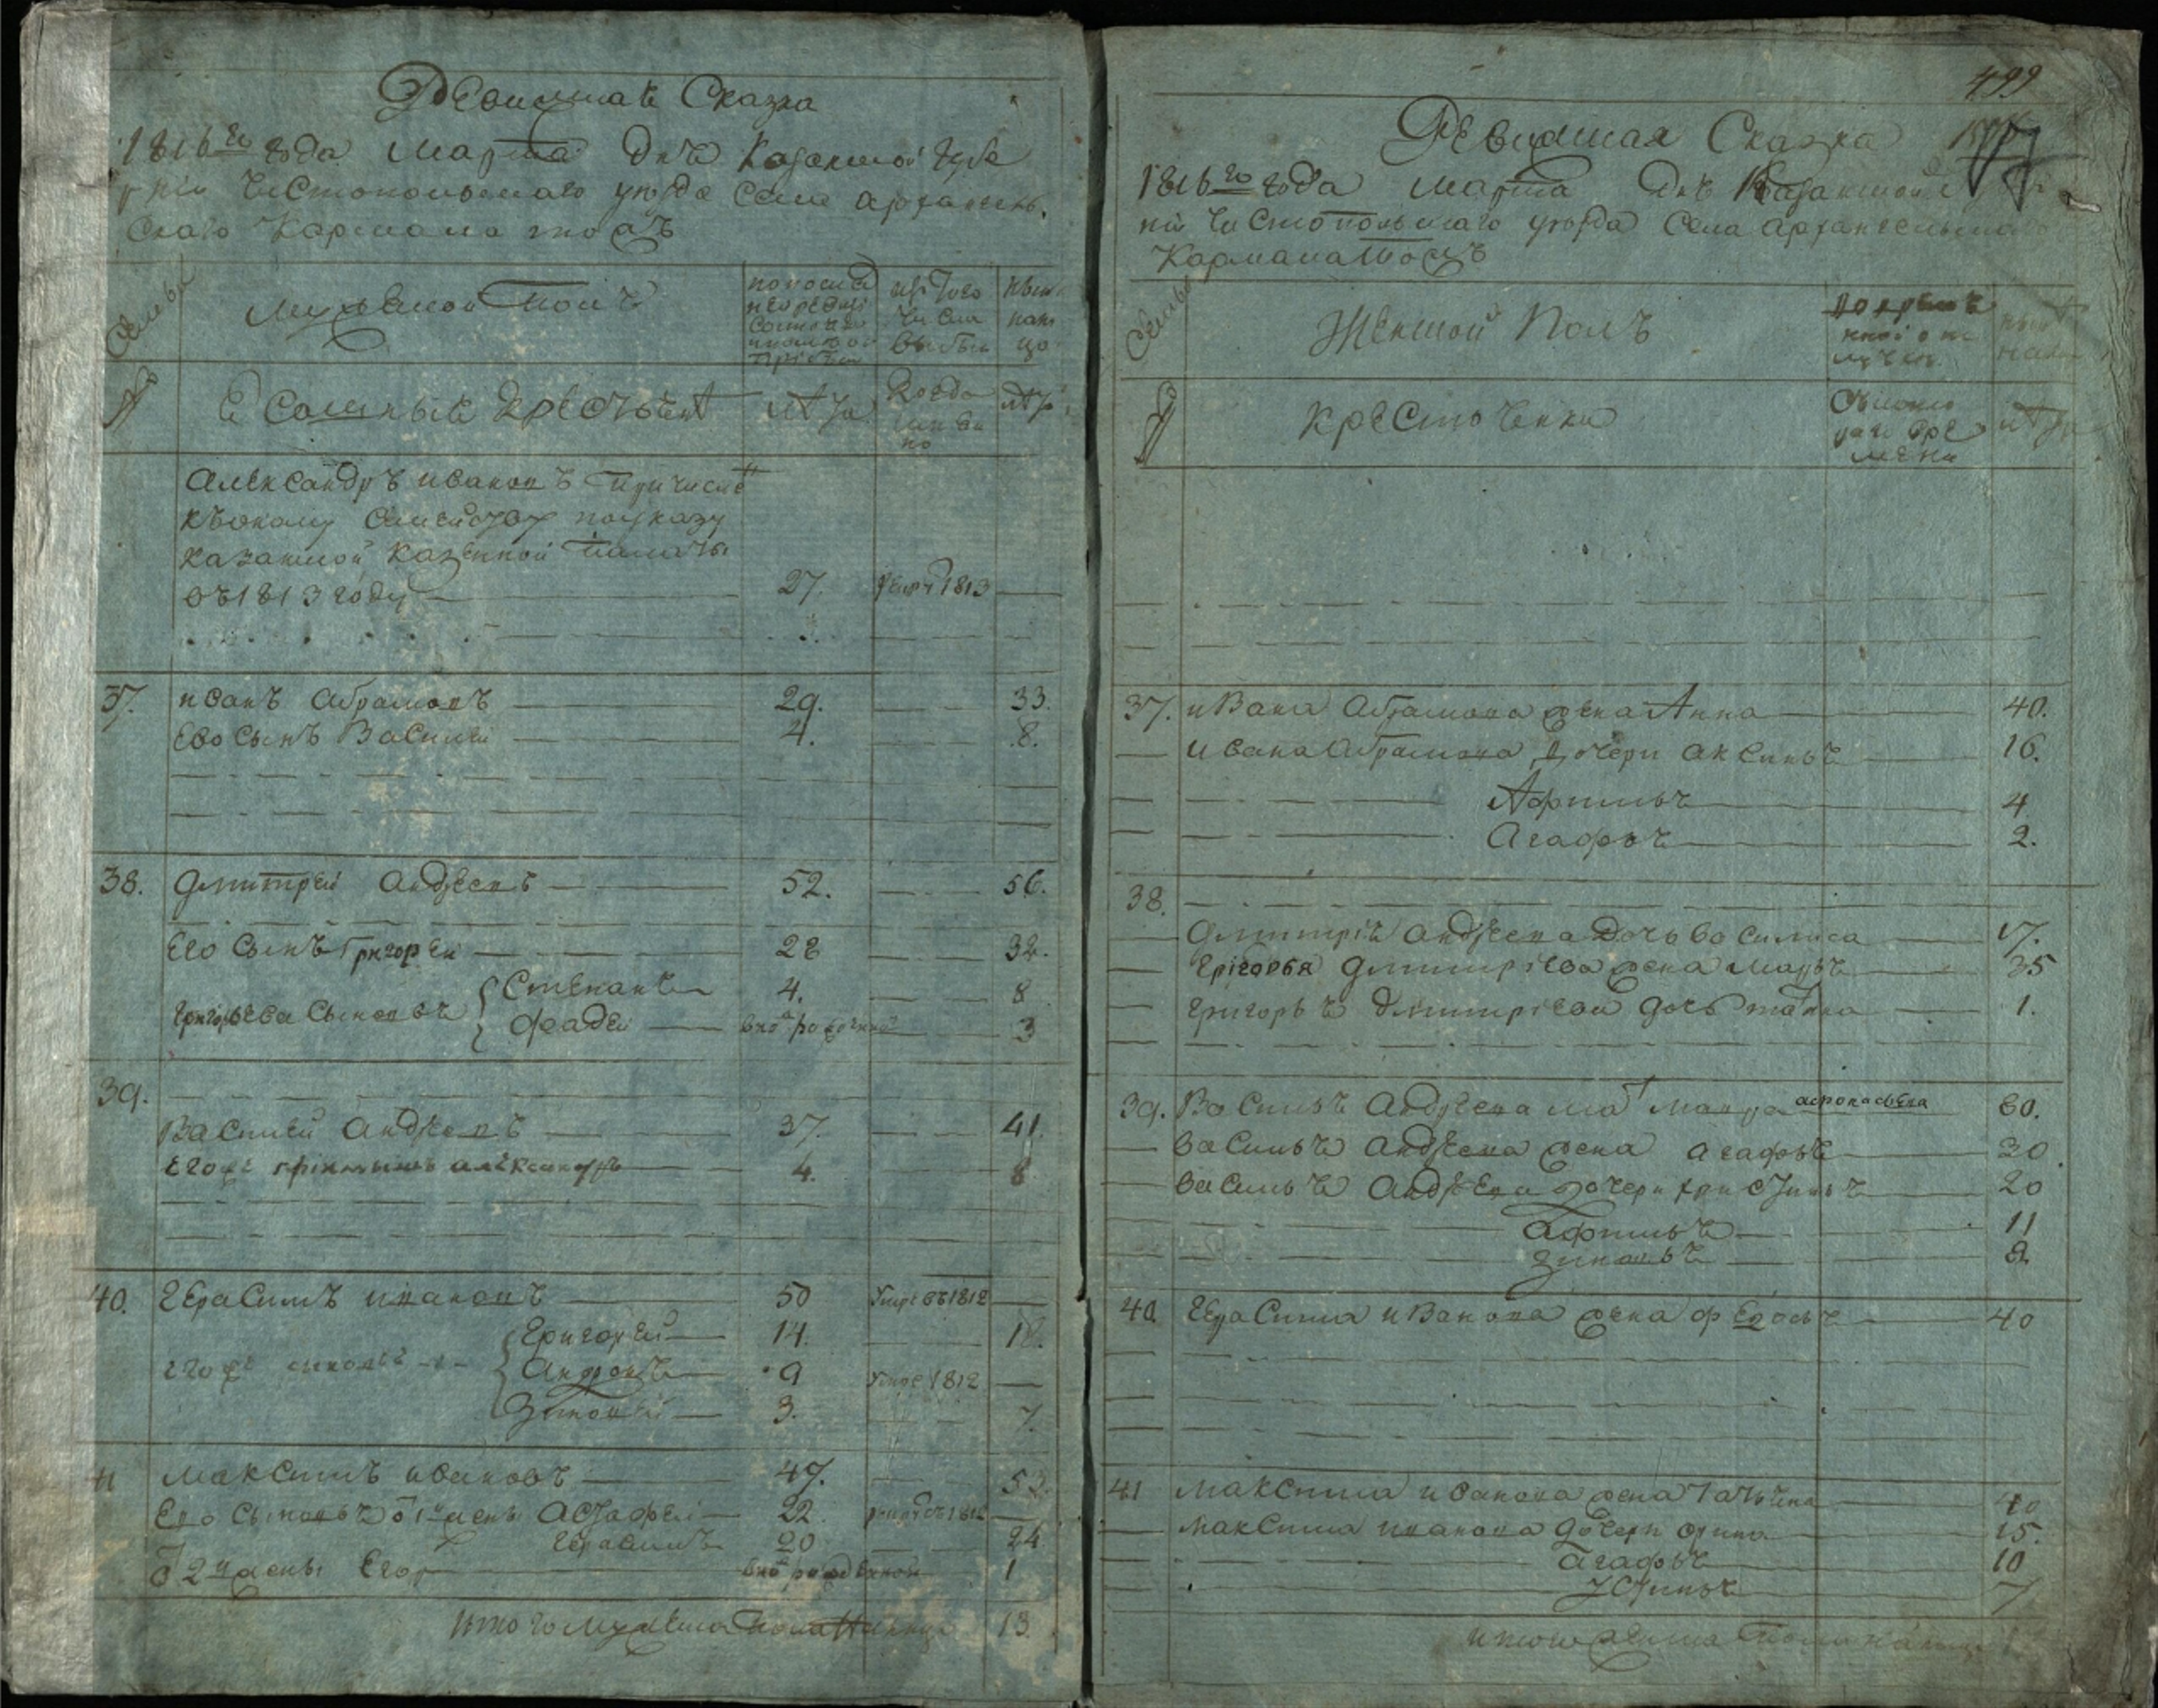 Ревизская Сказка
1816го года Марта дня Казанской Губе
рнии Чистопольскаго уезда Села архангель
скаго Кармана тожъ
Семьи
мужескои Полъ
изъ того
числа
выбыли
ныне
нали
цо
№
крестьяне
лета
когда
имянно
лета
александръ ивановъ причисле
къоному семейству поуказу
казанской казенной палаты
въ1813 году
27.
1813
37.
иванъ абрамовъ
29.
33.
Ево сынъ Василей
4.
8.
38.
Дмитрей андреевъ
52.
56.
Его сынъ Григорей
28
32.
Григорьева сыновья
Степанъ
4.
8
Фадей
вновь рожденной
3
39.
Василей андреевъ
37.
41.
Егоже племянникъ александръ
4.
8
40.
Герасимъ ивановъ
50
Умре въ1812
Егоже сыновья
Григорей
14.
18.
Андреянъ
9
Умре 1812
3.
7.
41
Максимъ ивановъ
49.
53.
Ево сыновья от 1й жены Астафей
22.
1812
Герасимъ
20
24
от 2й жены Егоръ
вновь рожденной
1
итого мужеска пола налицо
13.
499
Ревизская Сказка
1816го года Марта дня Казанской
нии чистопольскаго уезда Села архангельскаго
Кармана тожъ
Семьи
Женской Полъ
во времян
ной отлу
чке
ныне
налицо
№
крестьянки
съ кого
времени
лета
37.
ивана абрамова жена Анна
40.
ивана абрамова дочери аксинья
16.
Афимья
4
агафья
2.
38.
Дмитрия андреева дочь василиса
17.
Григорья Дмитриева жена марья
35
Григорья дмитриева дочь
1.
39.
Василья андреева мать
60.
василья андреева жена агафья
30.
василья андреева дочери христинья
20
афимья
11
зиновья
8
40
Герасима иванова жена федосья
40
41
Максима иванова жена татьяна
40
Максима иванова дочери орина
15.
агафья
10
устинья
7
итого женска пола налицо